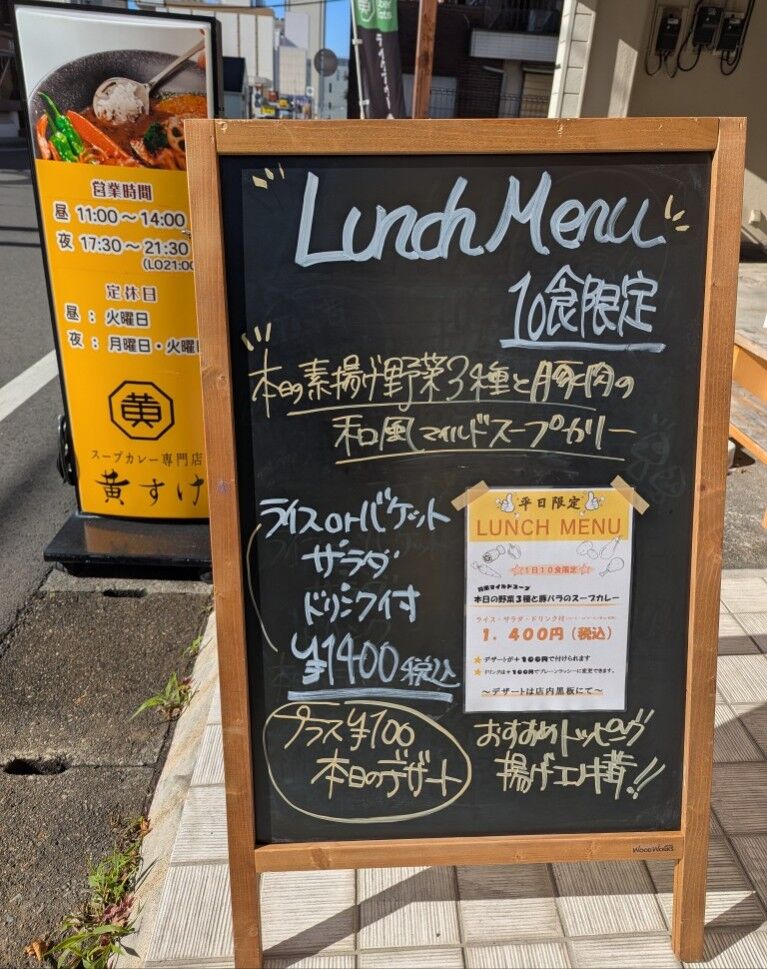 営業時間
昼 11:00～14:00
夜 17:30～21:30
(LO21:00
定休日
昼：火曜日
夜：月曜日・火曜日
黄
スープカレー専門店
黄すけ
Lunch Menu
10食限定
本日の素揚げ野菜3種と豚肉の
和風マイルドスープカリー
ライスorバゲット
サラダ
ドリンク付
¥1400税込
プラス¥100
本日のデザート
平日限定
LUNCH MENU
☆1日10食限定☆
和風マイルドスープ
本日の野菜3種と豚バラのスープカレー
ライス・サラダ・ドリンク付
1.400円（税込）
★デザートが＋100円で付けられます
★ドリンクは＋100円でプレーンラッシーに変更できます。
～デザートは店内黒板にて～
おすすめトッピング
揚げエノキ茸!!
WOOD WORKS